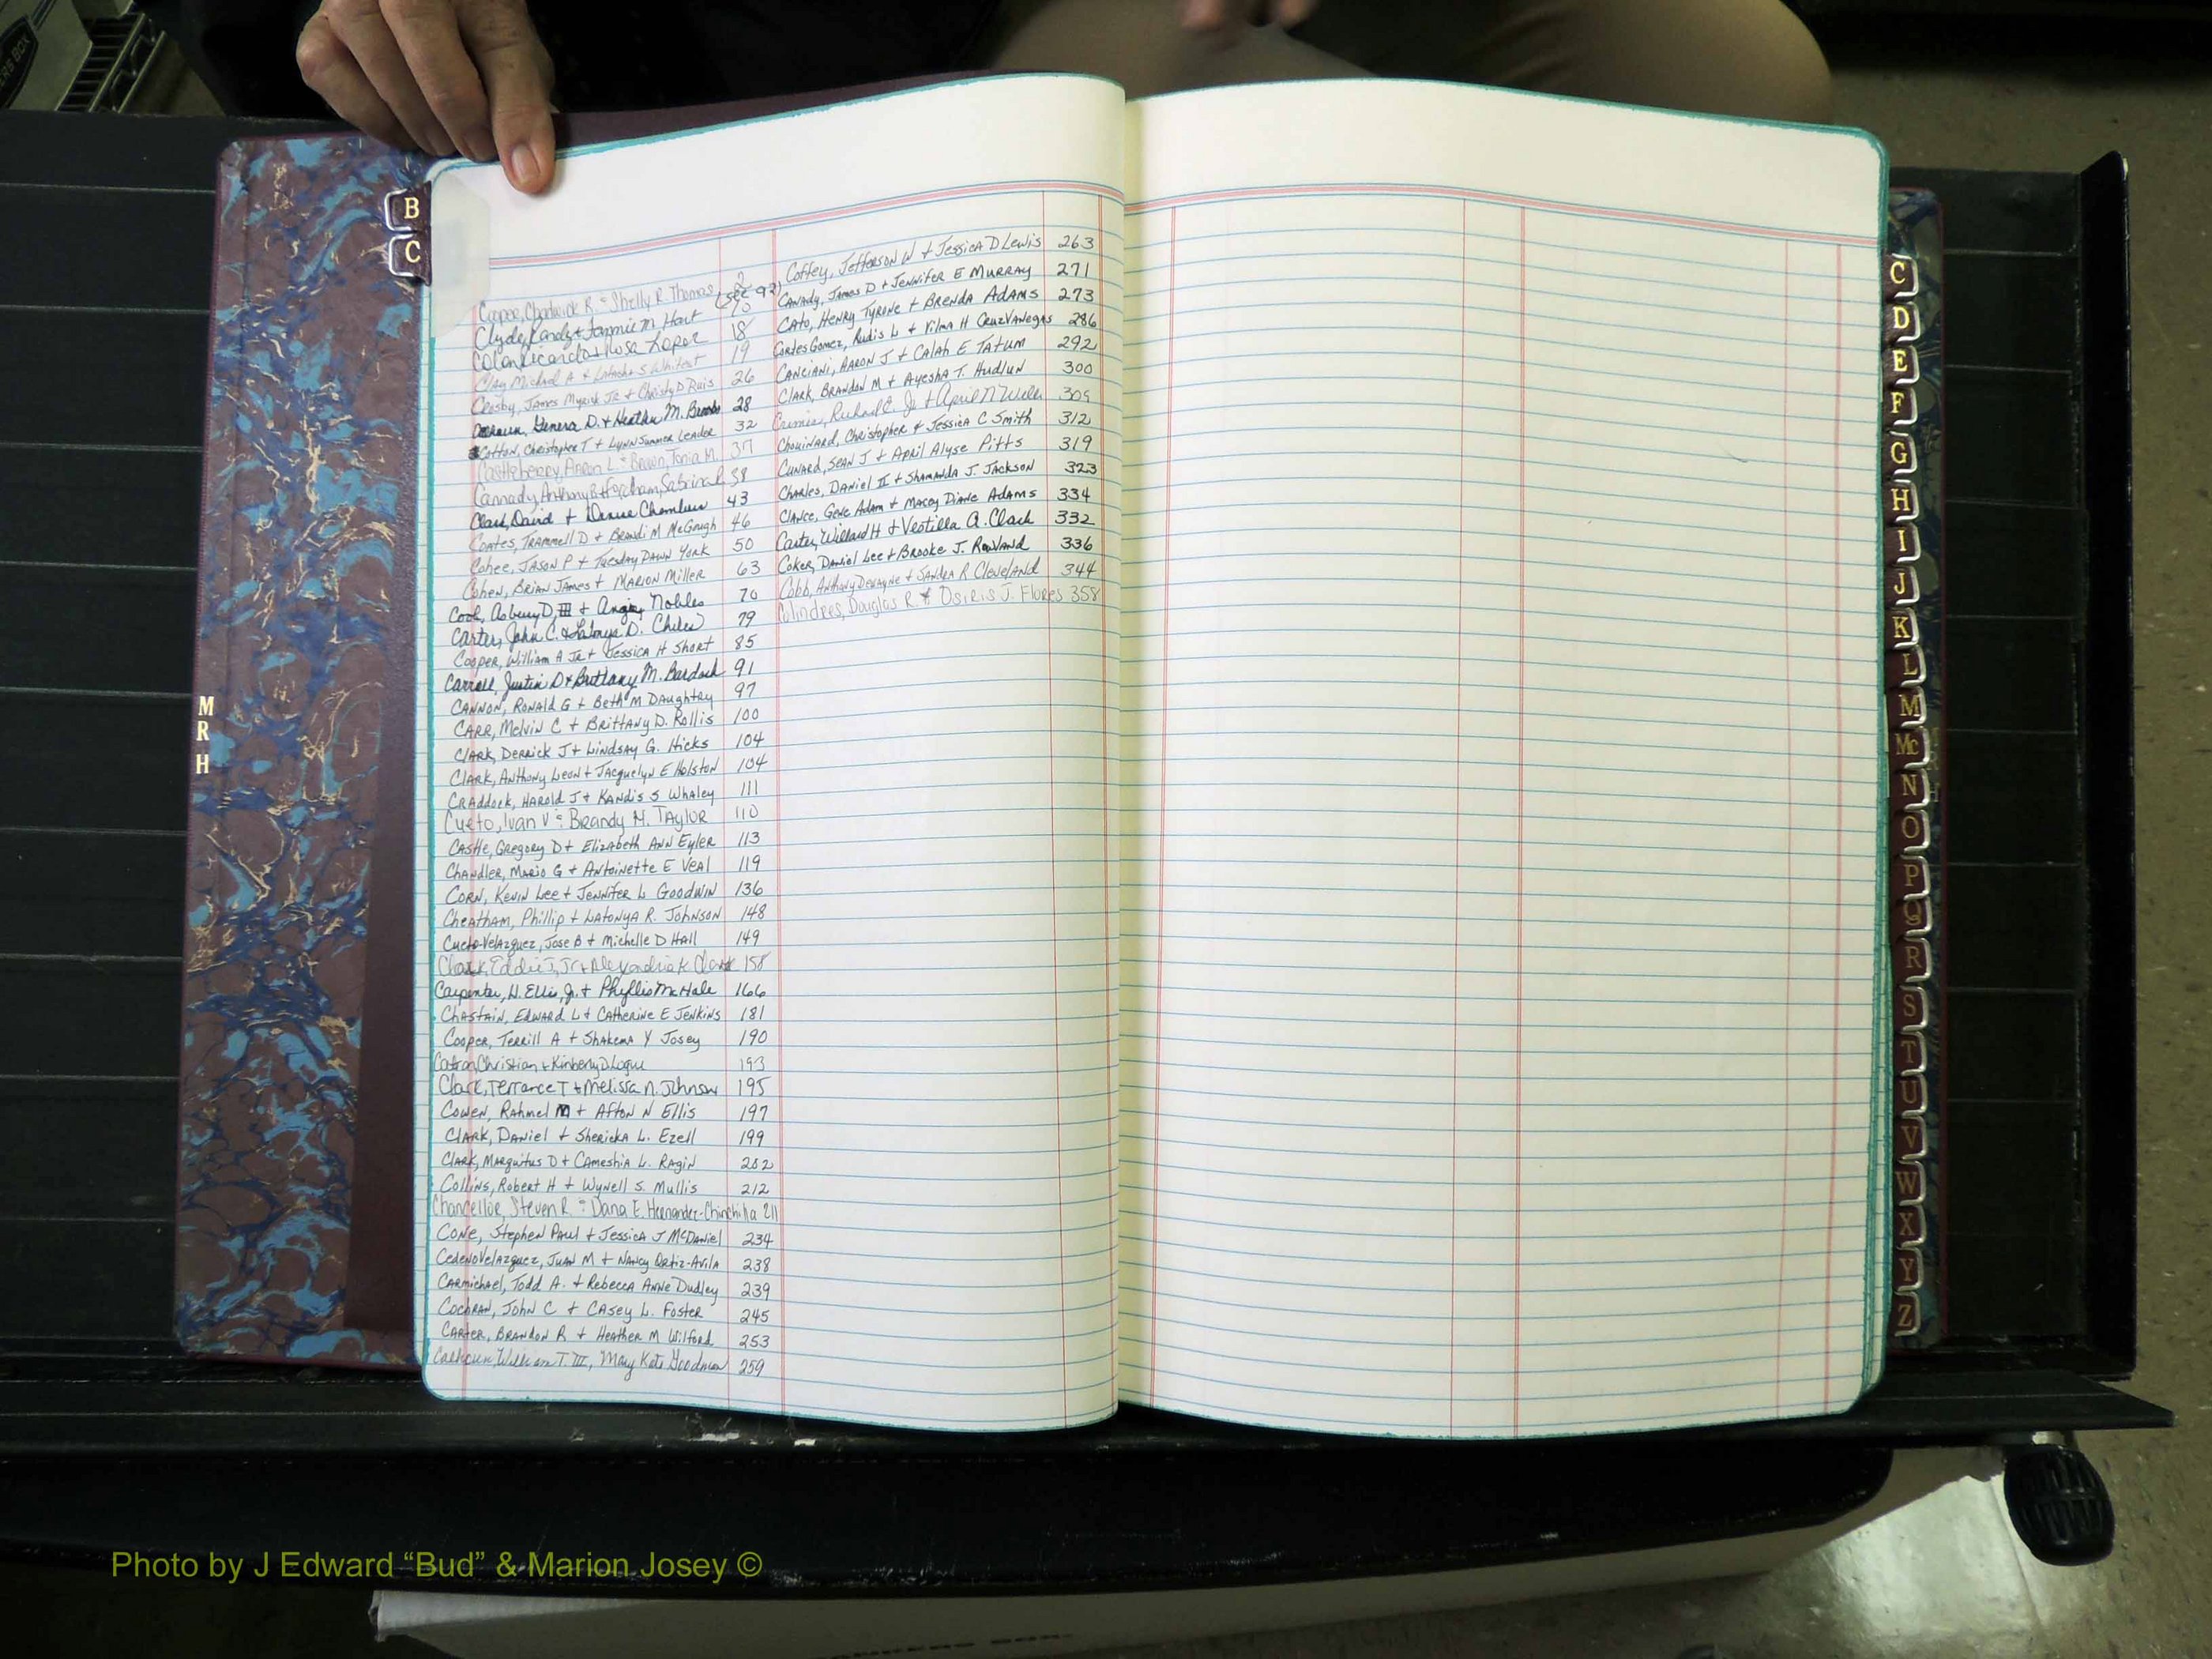 B
C
Cooper, Chadwick R. & Shelly R Thomas 2
(see 92)
Clyde, Randy + Tammie M. Hart
Colan Ricardo + Rosa Lopez 18
Clay Michael A + Latasha S Whitest 19
Crosby, James Myrick Jr + Christy D Ruis 26
Genera D. + Heather M. Brooks 28
Cotton, Christopher T + Lynn Summer Leader 32
Castleberry, Aaron L. & Brown, Tonia M. 37
Cannady, Anthony B + Fordham, Sabrina R 38
Clark, David + Denise Chambers 43
Coates, Trammell D + Brandi M McGough 46
Cohee, Jason P + Tuesday Dawn York 50
Cohen, Brian James + Marion Miller 63
Cook, Asbery D, III + Angie Nobles 70
Carter, John C. & Latonya D. Chiles 79
Cooper, William A Jr + Jessica H Short 85
Carroll, Justin D + Brittany M. Burdock 91
Cannon, Ronald G + Beth M Daughtry 97
Carr, Melvin C + Brittany D. Rollis 100
Clark, Derrick J + Lindsay G. Hicks 104
Clark, Anthony Leon + Jacquelyn E Holston 104
Craddock, Harold J + Kandis S Whaley 111
Cueto, Ivan V & Brandy M. Taylor 110
Castle, Gregory D + Elizabeth Ann Eyler 113
Chandler, Mario G + Antoinette E Veal 119
Corn, Kevin Lee + Jennifer L Goodwin 136
Cheatham, Phillip + Latonya R. Johnson 148
Cueto-Velazquez, Jose B + Michelle D Hall 149
Clark, Eddie J, Jr + Alexandria K Clark 158
Carpenter, W. Ellis, Jr. + Phyllis McHale 166
Chastain, Edward L + Catherine E Jenkins 181
Cooper, Terrill A + Shakema Y Josey 190
Catron, Christian + Kimberly D Logue 193
Clark, Terrance T + Melissa N. Johnson 195
Cowen, Rahmel M + Afton N Ellis 197
Clark, Daniel + Shericka L. Ezell 199
Clark, Marquitus D + Cameshia L. Ragin 202
Collins, Robert H + Wynell S. Mullis 212
Chancellor, Steven R. & Dana E. Hernandez-Chinchilla 211
Cone, Stephen Paul + Jessica J McDaniel 234
CedenoVelazquez, Juan M + Nancy Ortiz-Avila 238
Carmichael, Todd A. + Rebecca Anne Dudley 239
Cochran, John C + Casey L. Foster 245
Carter, Brandon R + Heather M Wilford 253
Calhoun William T. III, Mary Kate Goodman 259
Coffey, Jefferson W + Jessica D Lewis 263
Canady, James D + Jennifer E Murray 271
Cato, Henry Tyrone + Brenda Adams 273
Cortes Gomez, Rudis L + Vilma H CruzVanegas 286
Canciani, Aaron J + Calah E Tatum 292
Clark, Brandon M + Ayesha T. Hudlun 300
Richard E. Jr + April N Wells 309
Chouinard, Christopher & Jessica C Smith 312
Cunard, Sean J + April Alyse Pitts 319
Charles, Daniel II + Shamanda J. Jackson 323
Clance, Gene Adam + Macey Diane Adams 334
Carter, Willard H + Vestilla A. Clack 332
Coker, Daniel Lee + Brooke J. Rowland 336
Cobb, Anthony Dewayne + Sandra R Cleveland 344
Colindres, Douglas R. & Osiris J. Flores 358
C
D
E
F
G
H
I
J
K
L
M
Mc
N
O
P
Q
R
S
T
U
V
W
X
Y
Z
M
R
H
Photo by J Edward “Bud” & Marion Josey ©